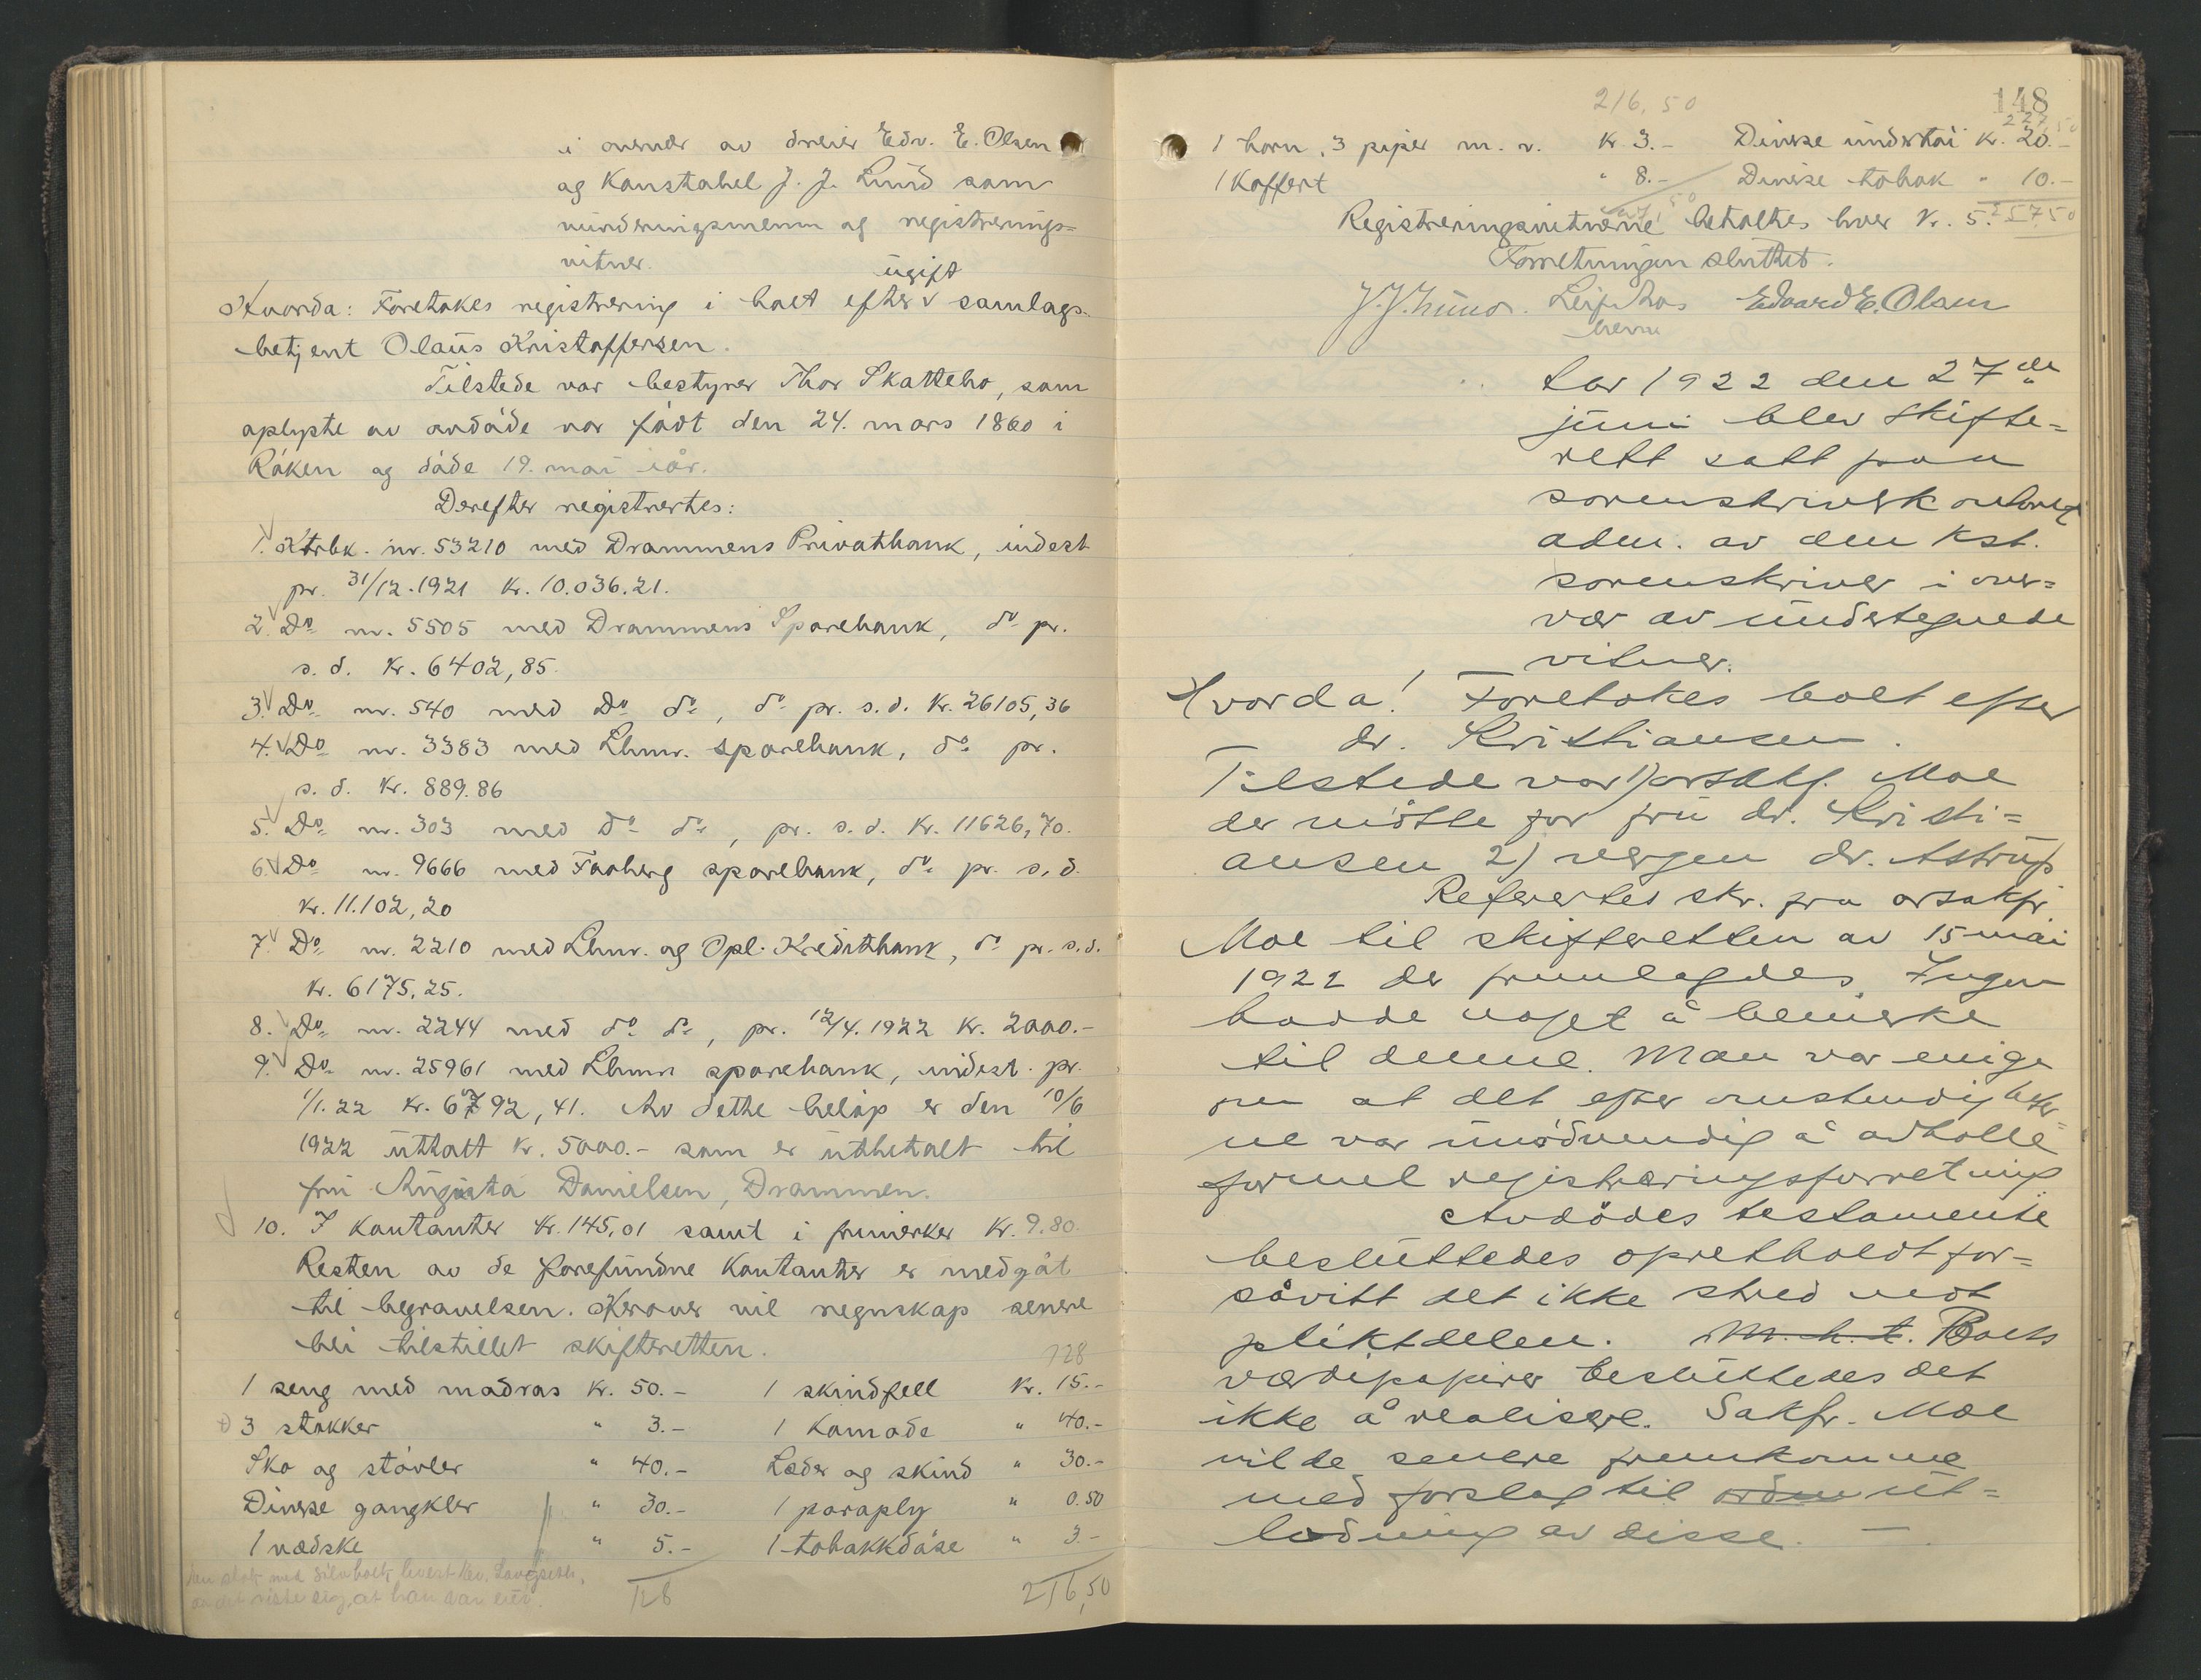 i overvær av dreier Edv. E. Olsen
og Konstabel J. J. Lund som
vurderingsmenn og registrerings=
vitner.
Hvorda: Foretokes registrering i boet efter ugift samlags-
betjent Olaus Kristoffersen.
Tilstede var bestyrer Thor Skattebo, som
oplyste av avdöde var födt den 24. mars 1860 i
Röken og döde 19. mai iår.
Derefter registrertes:
1. Ktrbk. nr. 53210 med Drammens Privatbank, indest
pr. 31/12.1921 kr. 10.036.21.
2. Do nr. 5505 med Drammens Sparebank, do pr.
s. d. kr. 6402,85.
3. Do nr. 540 med Do do, do pr. s.d. kr. 26105,36
4. Do nr. 3383 med Lhmr. sparebank, do pr.
s. d. kr. 889.86
5. Do nr. 303 med do do, pr. s.d. kr. 11626,70.
6. Do nr. 9666 med Faaberg sparebank, do pr. s.d.
kr. 11.102,20
7. Do nr. 2210 med Lhmr. og Opl. Kreditbank, do pr. s.d.
kr. 6175,25.
8. Do nr. 2244 med do do, pr. 12/4.1922 kr. 2000.-
9. Do nr. 25961 med Lhmr sparebank, indest. pr.
1/1.22 kr. 6792,41. Av dette belöp er den 10/6
1922 uttatt kr. 5000.- som er utbetalt til
fru Augusta Danielsen, Drammen.
10. I kontanter kr. 145,01 samt i frimerker kr. 9.80.
Resten av de forefundne kontanter er medgåt
til begravelsen. Herover vil regnskap senere
bli tilstillet skifteretten.
128
1 seng med madras kr. 50.- 1 skindfell kr. 15.-
3 stokker " 3.- 1 Komode " 40.-
Sko og stövler " 40.- Læder og skind " 30.-
Diverse gangklær " 30.- 1 paraply " 0.50
1 vædske " 5.- 1 tobakkdåse " 3.-
128 216,50
216,50
148
227,50
1 horn, 3 piper m. v. kr. 3.- Diverse undertöi kr. 20.-
1 Koffert " 8.- Diverse tobak " 10.-
257,50
Registreringsvitnerne betaltes hver kr. 5.-
Forretningen sluttet.
J. J. Lund. Leif Aas Edvard E. Olsen
Aar 1922 den 27de
juni blev skifte=
rett satt paa
sorenskriverkontoret
adm. av den kst.
sorenskriver i over=
vær av undertegnede
vitner.
Hvorda! Foretokes boet efter
dr. Kristiansen.
Tilstede var 1) orsakf. Moe
der mötte for fru dr. Kristi=
ansen 2) vergen dr. Astrup
Referertes skr. fra orsakfr.
Moe til skifteretten av 15 mai
1922 der fremlagdes. Ingen
hadde noget å bemerke
til denne. Man var enige
om at det efter omstendighete=
ne var unödvendig å avholde
formel registreringsforretning
Avdödes testamente
besluttedes opretholdt for=
såvitt det ikke stred mot
pliktdelen. M. h. t. Boets
værdipapirer besluttedes det
ikke å realisere. Sakfr. Moe
vilde senere fremkomme
med forslag til ut=
lodning av disse. —